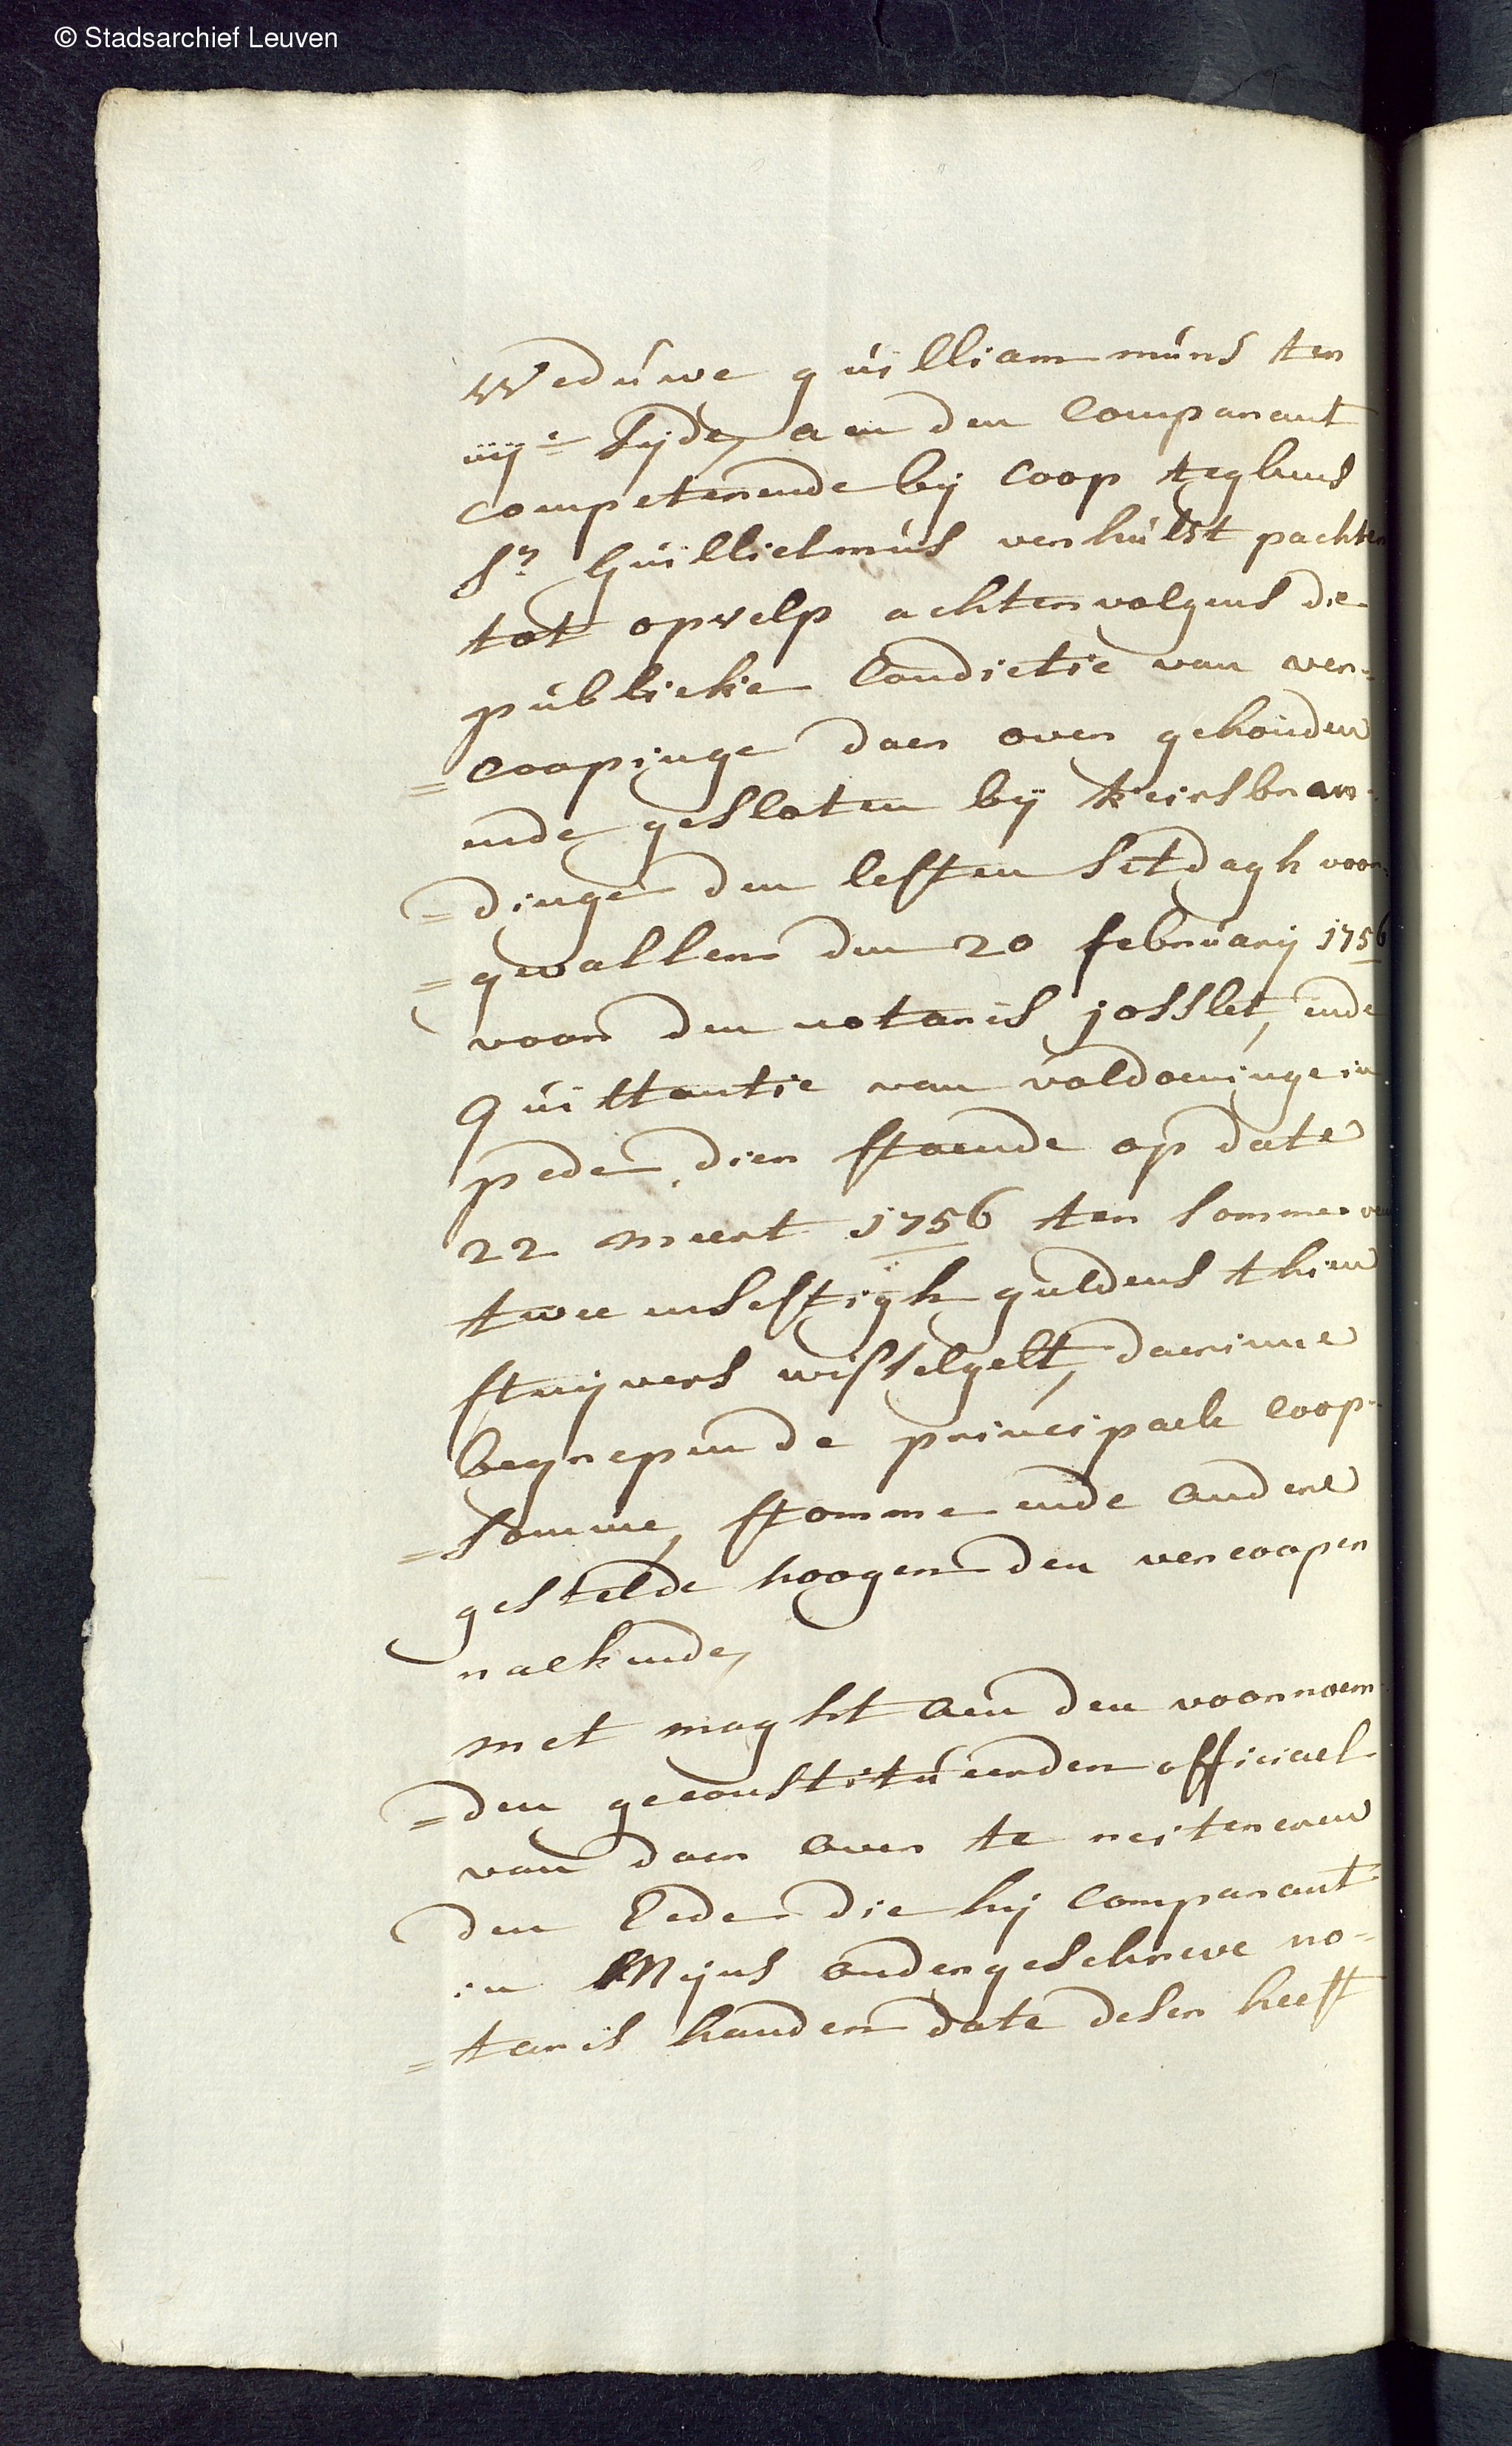 © Stadsarchief Leuven
Wedúwe gúilliam múns ter
iiije sijde, aen den Comparant
competerende bij coop teghens
Sr Guilliclmús verhúlst pachter
tot opvelp achtervolgens die
públieke Condictie van ver=
=coopinge daer over gehouden
ende gesloten bij keirsbran=
=dinge den lesten sitdagh voor=
=gevallen den 20 februarij 1756
voor den notaris josslet, ende
Quittantie van voldoeninge in
pede dier staende op date
22 meert 1756 ter somme van
twee ensestigh guldens thien
stuijvers wisselgelt, daerinne
begrepen de principaele coop=
=somme, stomme ende andere
gestelde hoogen den vercooper
naekende,
met maght aen den voornoem
=den geconstitúeerden officiael
van daer over te reitereren
den Eede die hij comparant
in Mijns ondergeschreve no=
=taris handen date deser heeft